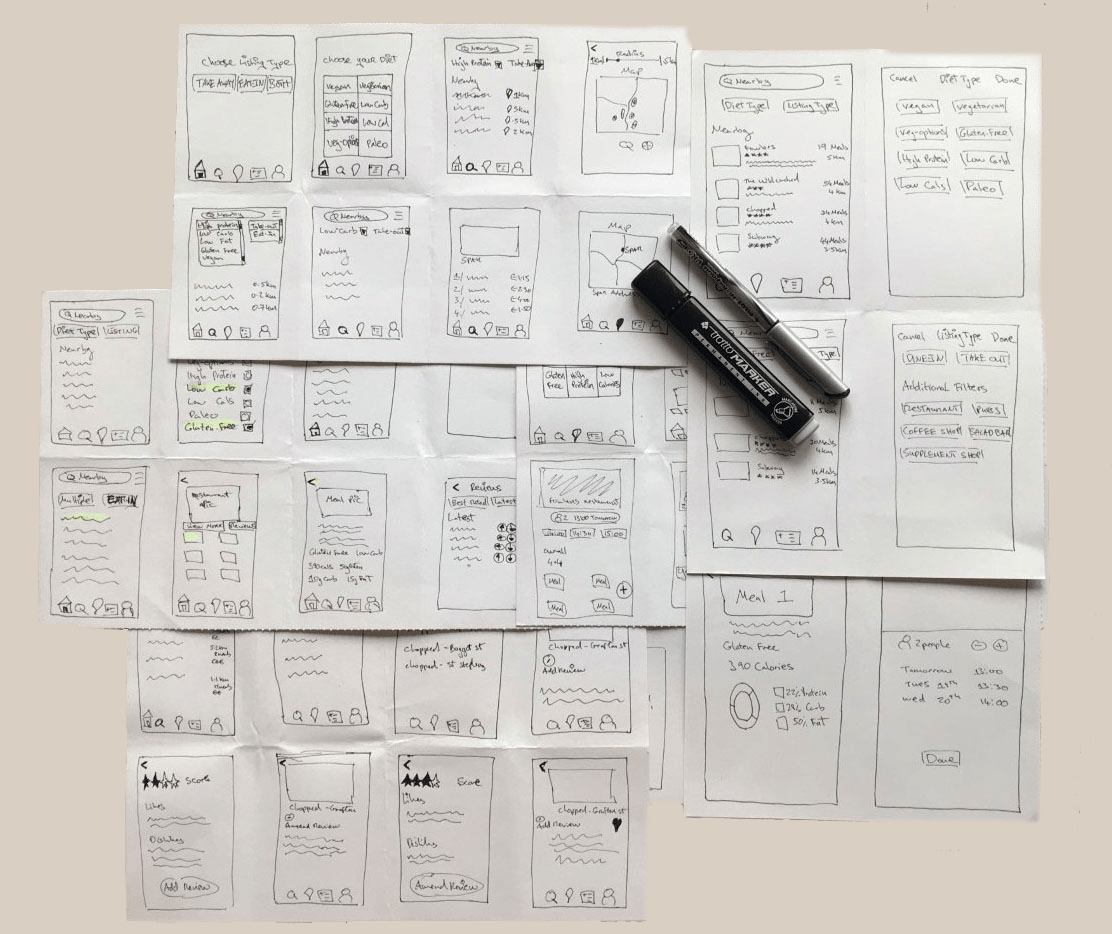 Choose Listing Type
TAKE AWAY EAT IN BOTH
Choose your DIET
Vegan Vegetarian
Gluten Free Low Carb
High Protein Low Cal
Veg-options Paleo
Nearby
High Protein
Nearby
1km
5km
.5km
2km
Radius
5km
Map
Nearby
High protein
Low Carb
Low Fat
Gluten Free
Vegan
Take-out
Eat-In
0.5km
0.2km
0.7km
Nearby
Low Carb Take-out
Nearby
SPAR
1/
2/
3/
4/
Map
SPAR
Spar Address
Nearby
Diet Type Listing Type
Nearby
Fowlers 19 Meals
5km
The Wild 54 Meals
4 km
Chopped 34 Meals
4km
Subway 44 Meals
3.5km
Cancel Diet Type Done
Vegan Vegetarian
Veg-options Gluten-Free
High Protein Low Carb
Low Cals Paleo
Nearby
Diet Type LISTING
Nearby
High Protein
Low Carb
Low Cals
Paleo
Gluten-Free
Gluten Free High Protein Low Calories
Nearby
5km
20 Meals
4km
Subway 14 Meals
3.5km
Cancel Listing Type Done
DINE IN TAKE OUT
Additional Filters
RESTAURANT PUBS
COFFEE SHOP SALAD BAR
SUPPLEMENT SHOP
TOTTO MARKER
Nearby
EAT-IN
Restaurant
PIC
View Menu Reviews
Meal Pic
Gluten Free Low Carb
15g Fat
Reviews
Best Rated Latest
Latest
FOWLERS RESTAURANT
2 13:00 Tomorrow
14:30 15:00
Overall
4.4
Meal Meal
Meal Meal
Chopped - St
Chopped - St
Chopped - Grafton st
Add Review
Meal 1
Gluten Free
390 Calories
22% Protein
28% Carb
50% Fat
2 people
Tomorrow 13:00
Tues 19th 13:30
Wed 20th 14:00
Done
Score
Likes
Dislikes
Add Review
Chopped - Grafton
Amend Review
Score
Likes
Dislikes
Amend Review
Chopped - Grafton st
Add Review